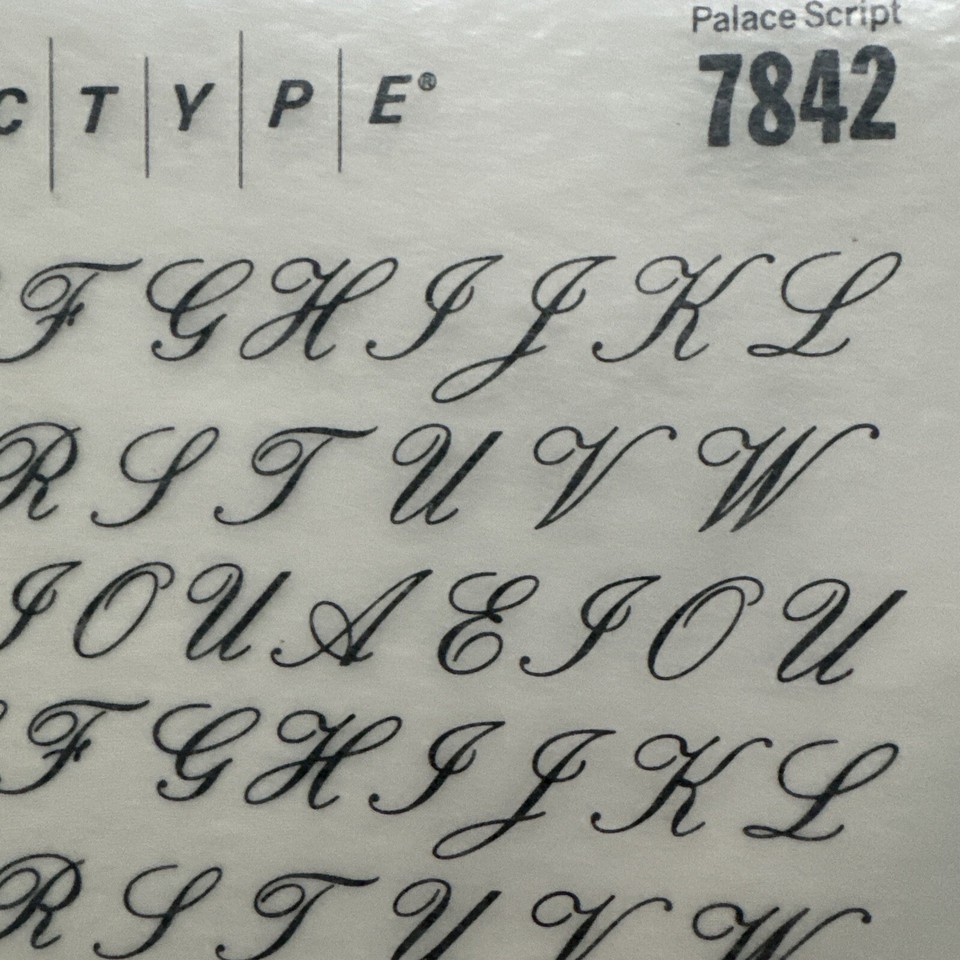 Palace Script
C T Y P E®
7842
F G H I J K L
R S T U V W
I O U A E I O U
F G H I J K L
R S T U V W